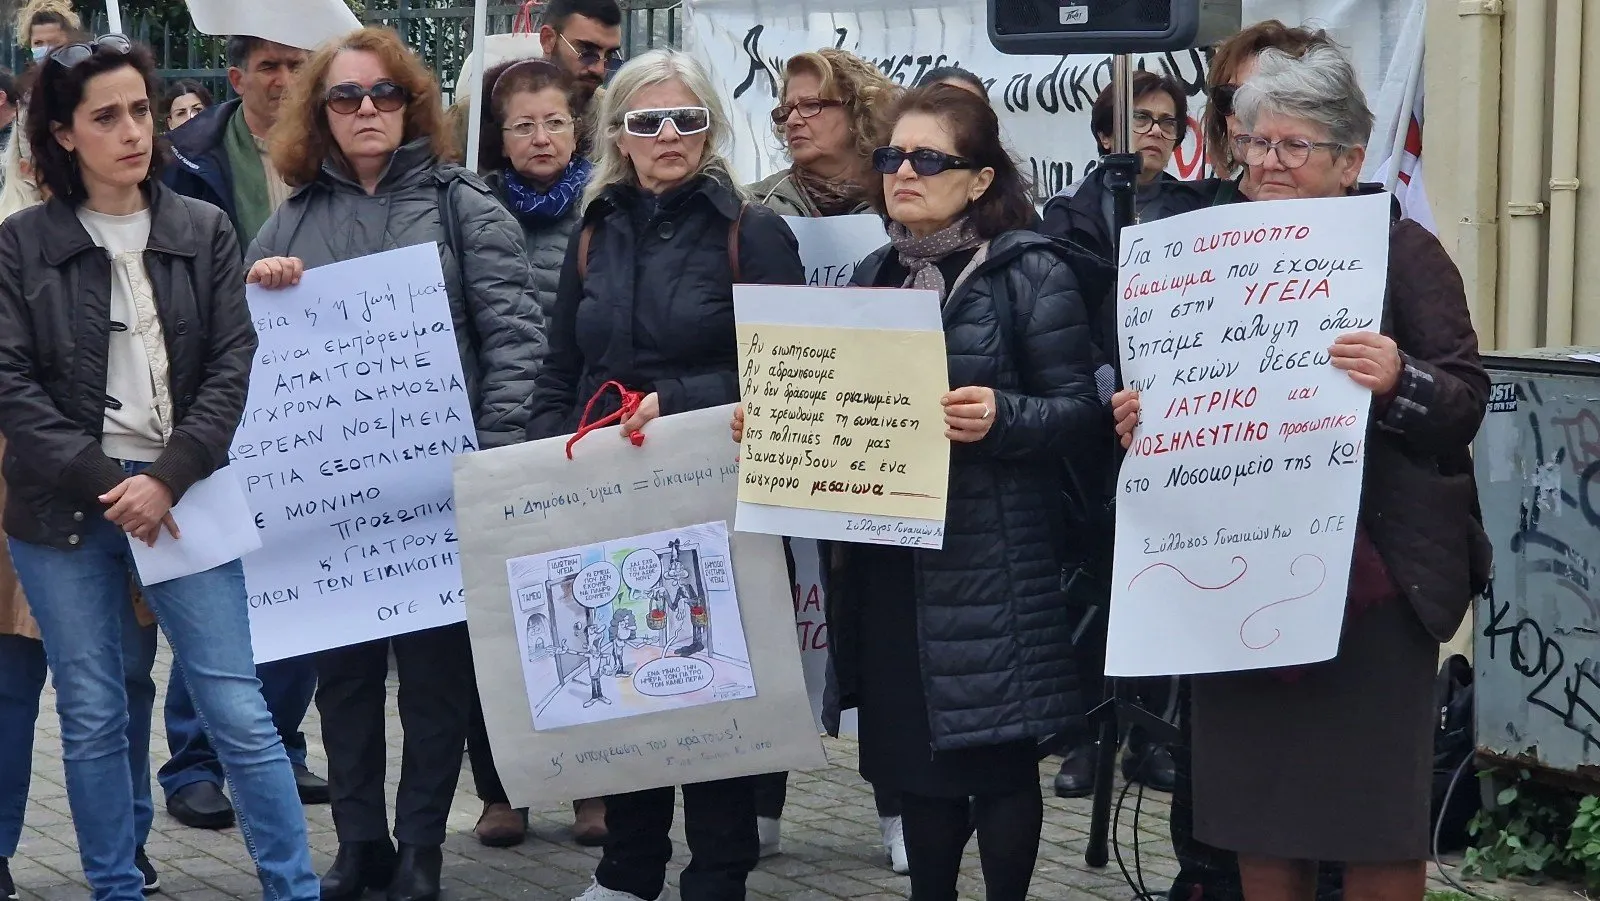 Peavey
το δικαίωμα
και
εία κ' η ζωή μας
είναι εμπόρευμα
ΑΠΑΙΤΟΥΜΕ
ΥΓΧΡΟΝΑ ΔΗΜΟΣΙΑ
ΔΩΡΕΑΝ ΝΟΣ/ΜΕΙΑ
ΡΤΙΑ ΕΞΟΠΛΙΣΜΕΝΑ
Ε ΜΟΝΙΜΟ
ΠΡΟΣΩΠΙΚ
κ' ΓΙΑΤΡΟΥΣ
ΟΛΩΝ ΤΩΝ ΕΙΔΙΚΟΤΗ
ΟΓΕ ΚΩ
Η Δημόσια υγεία = δικαίωμά μας
ΙΔΙΩΤΙΚΗ ΥΓΕΙΑ
ΤΑΜΕΙΟ
ΚΙ ΕΜΕΙΣ
ΠΟΥ ΔΕΝ
ΕΧΟΥΜΕ
ΝΑ ΠΛΗΡΩ
ΣΟΥΜΕ;;
ΣΑΣ ΕΧΩ
ΤΟ ΚΑΛΑΘΙ
ΤΟΥ ΑΣΘΕ
ΝΟΥΣ!
ΔΗΜΟΣΙΟ
ΣΥΣΤΗΜΑ
ΥΓΕΙΑΣ
ΕΝΑ ΜΗΛΟ ΤΗΝ
ΗΜΕΡΑ ΤΟΝ ΓΙΑΤΡΟ
ΤΟΝ ΚΑΝΕΙ ΠΕΡΑ!
κ' υποχρέωση του κράτους!
Αν σιωπήσουμε
Αν αδρανήσουμε
Αν δεν δράσουμε οργανωμένα
θα χρεωθούμε τη συναίνεση
στις πολιτικές που μας
ξαναγυρίζουν σε ένα
σύγχρονο μεσαίωνα
Σύλλογος Γυναικών Κω
Ο.Γ.Ε
Για το αυτονόητο
δικαίωμα που έχουμε
όλοι στην ΥΓΕΙΑ
ζητάμε κάλυψη όλων
των κενών θέσεων
ΙΑΤΡΙΚΟ και
ΝΟΣΗΛΕΥΤΙΚΟ προσωπικό
στο Νοσοκομείο της Κω!
Σύλλογος Γυναικών Κω Ο.Γ.Ε